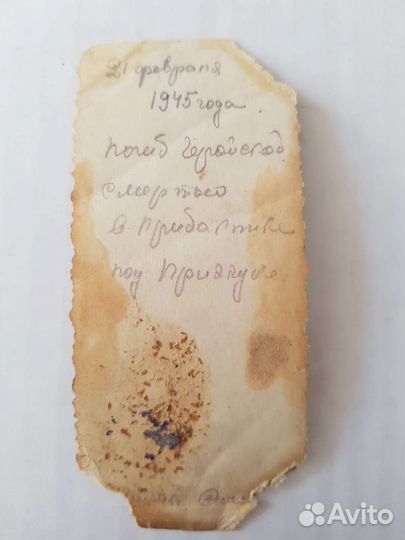 21 февраля
1945 года
погиб геройской
смертью
в Прибалтике
под
Avito